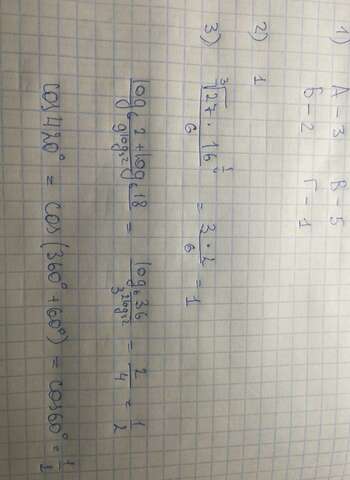 1) А – 3 В – 5
Б – 2 Г – 1
2) 1
3) (∛27 · 16^(1/4))/6 = (3 · 2)/6 = 1
(log₆2 + log₆18)/(9^(log₃2)) = (log₆36)/(3^(2log₃2)) = 2/4 = 1/2
cos420° = cos(360° + 60°) = cos60° = 1/2